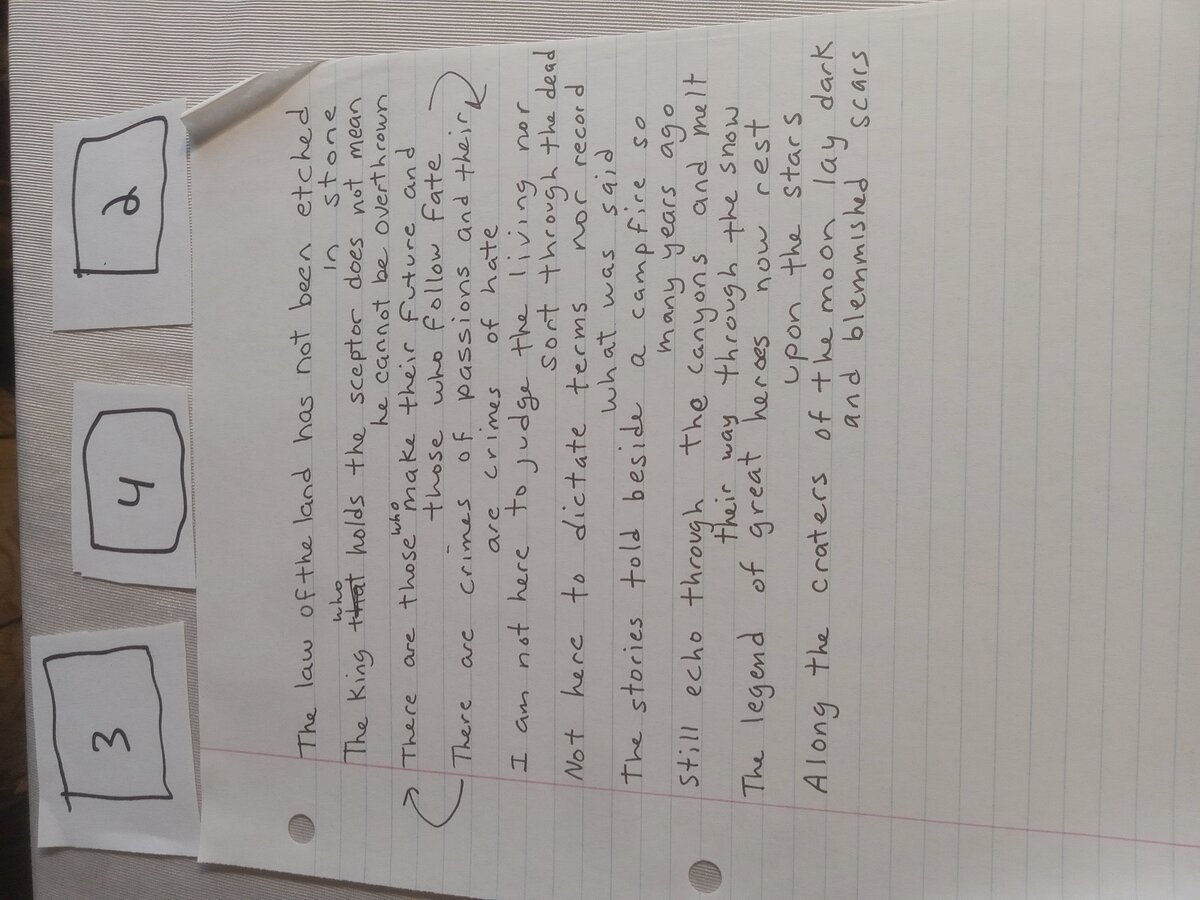 3
4
2
The law of the land has not been etched
in stone
The King that who holds the sceptor does not mean
he cannot be overthrown
There are those who make their future and
those who follow fate
There are crimes of passions and their
are crimes of hate
I am not here to judge the living nor
sort through the dead
Not here to dictate terms nor record
what was said
The stories told beside a campfire so
many years ago
Still echo through the canyons and melt
their way through the snow
The legend of great heroes now rest
upon the stars
Along the craters of the moon lay dark
and blemmished scars